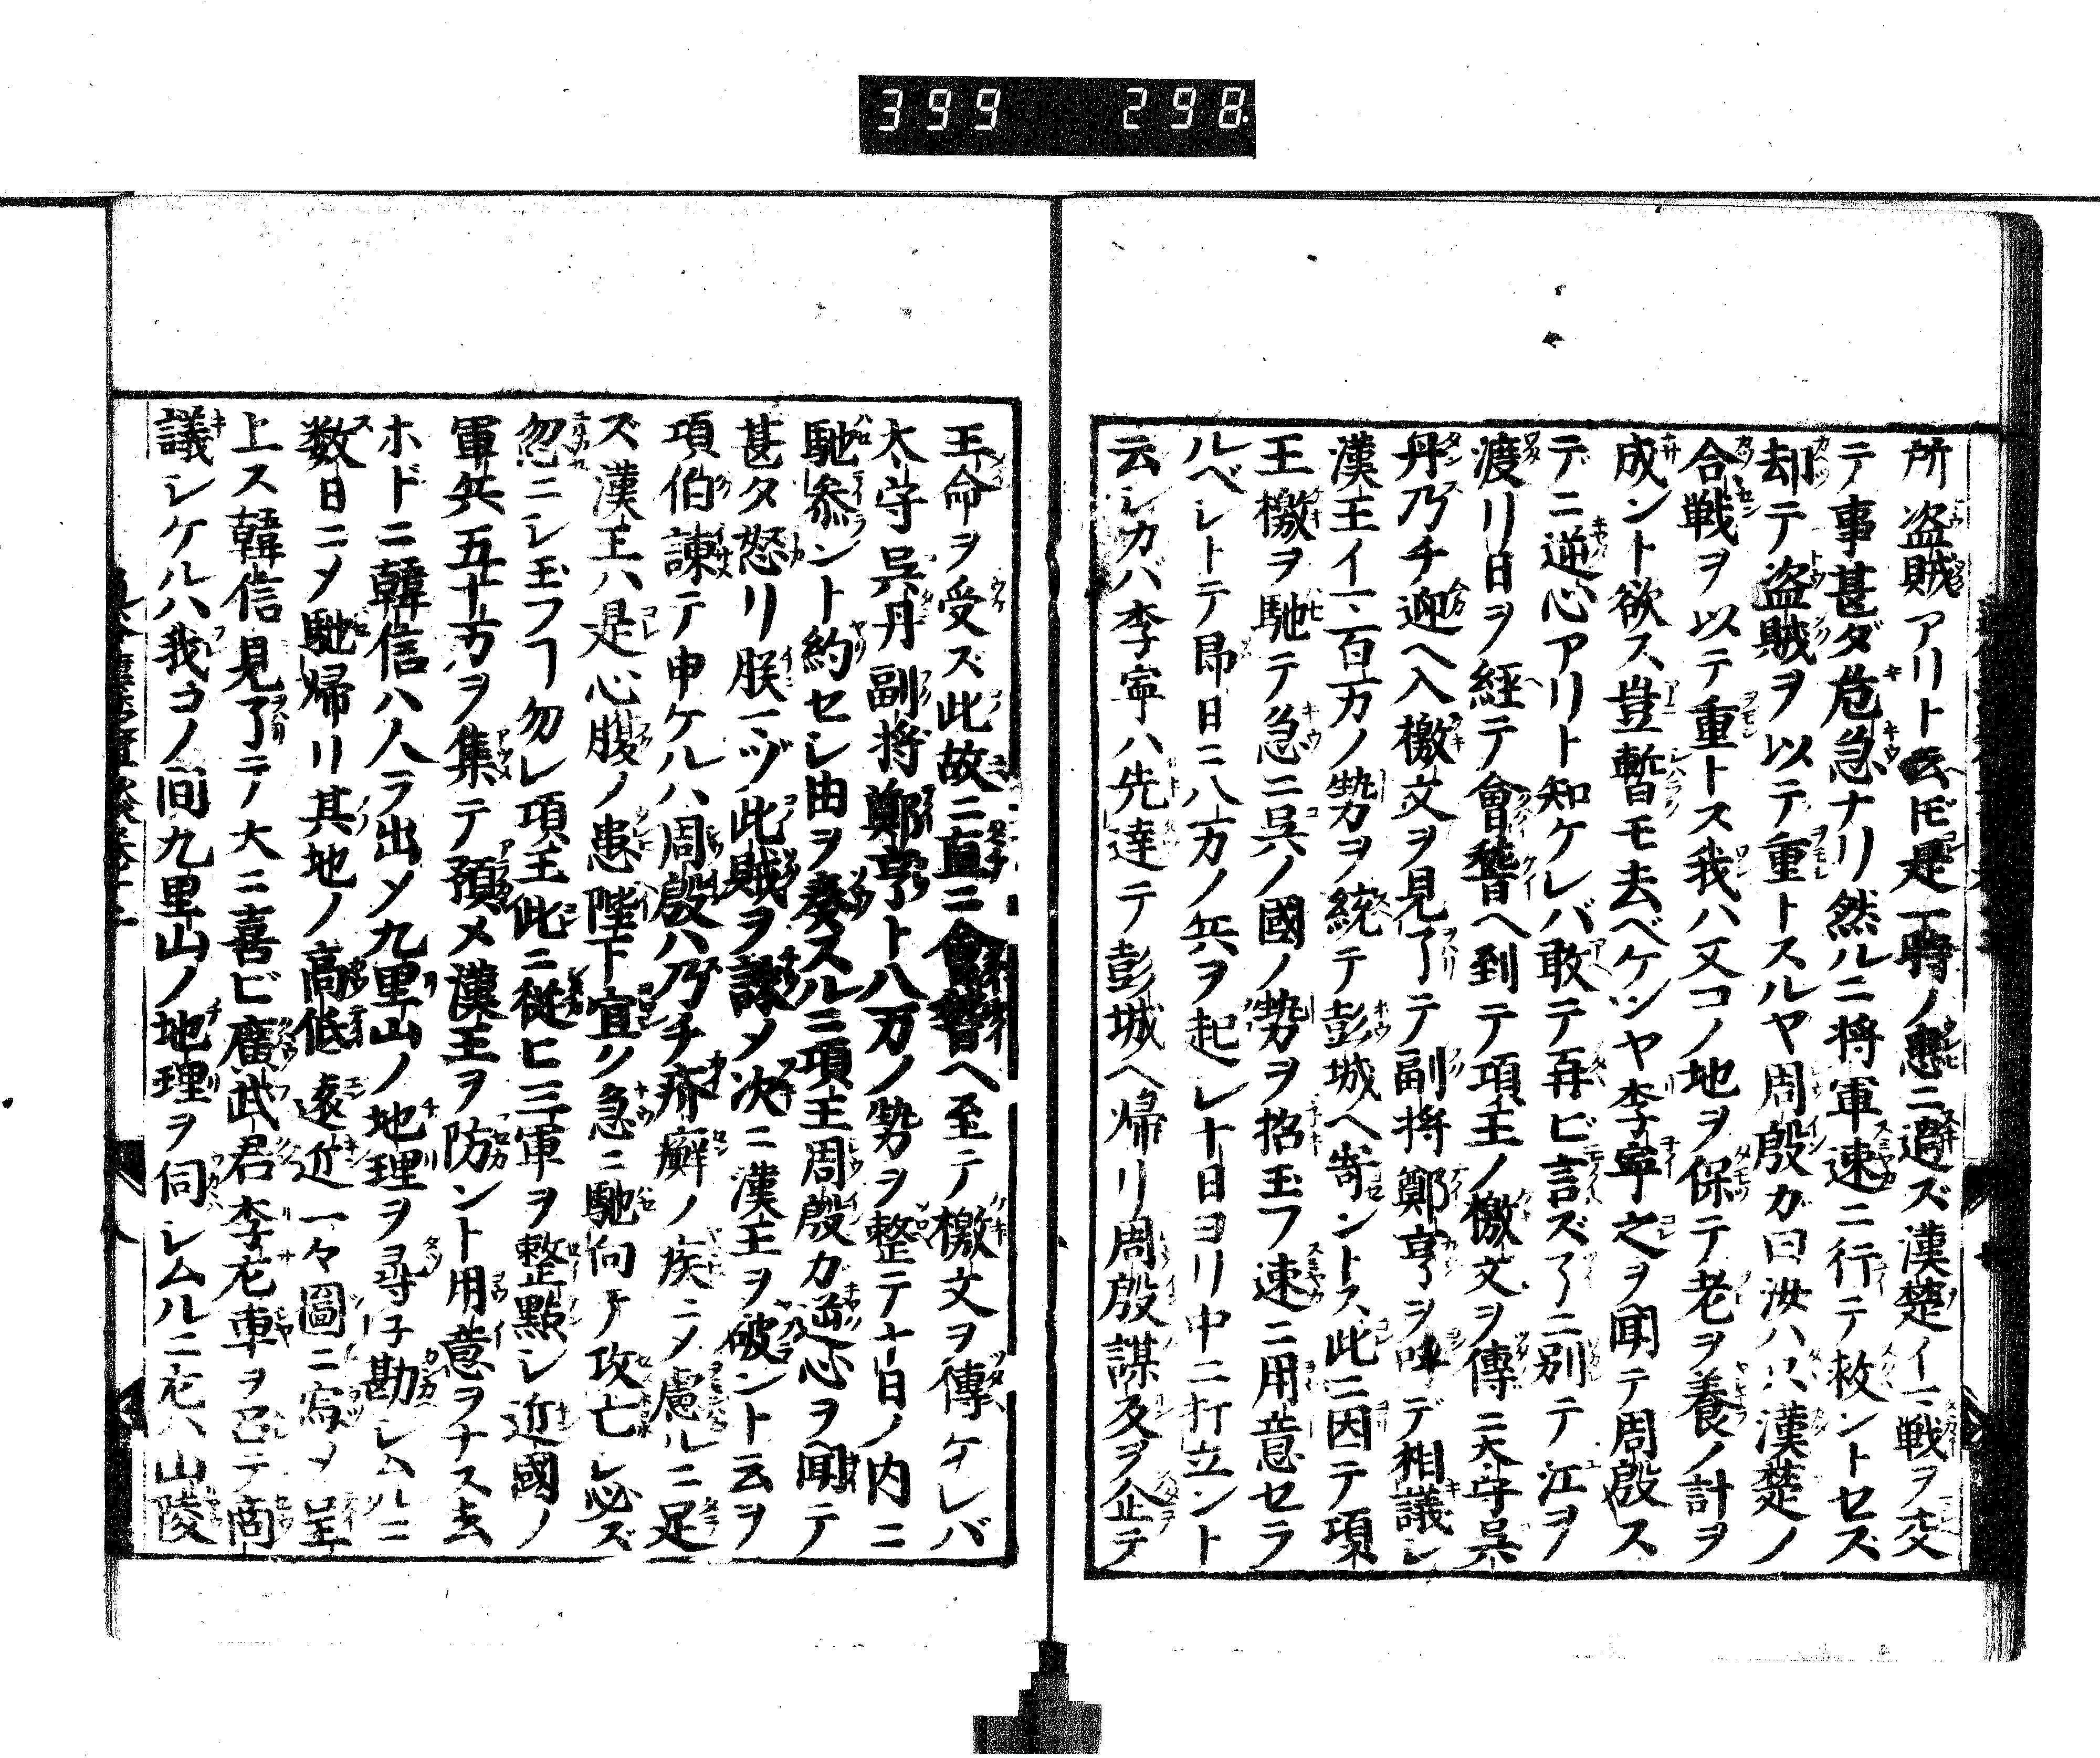 399 298
所盗賊アリト云ドモ是一時ノ患ニ過ズ漢楚イマ戦ヲ交
テ事甚ダ危急ナリ然ルニ将軍速ニ行テ救ントセズ
却テ盗賊ヲ以テ重トスルヤ周殷ガ曰汝ハ只漢楚ノ
合戦ヲ以テ重トス我ハ又コノ地ヲ保テ老ヲ養ノ計ヲ
成ント欲ス豈暫モ去ベケンヤ李寧之ヲ聞テ周殷ス
テニ逆心アリト知ケレバ敢テ再ビ言ズ了ニ別テ江ヲ
渡リ日ヲ経テ會稽ヘ到テ項王ノ檄文ヲ傳ニ太守呉
丹乃チ迎ヘ入檄文ヲ見了テ副将鄭亨ヲ呼デ相議シ
漢王イマ百万ノ勢ヲ統テ彭城ヘ寄ントス此ニ因テ項
王檄ヲ馳テ急ニ呉ノ國ノ勢ヲ招玉フ速ニ用意セラ
ルベシトテ即日ニ八万ノ兵ヲ起シ十日ヨリ中ニ打立ント
云シカバ李寧ハ先達テ彭城ヘ帰リ周殷謀反ヲ企テ
王命ヲ受ズ此故ニ直ニ會稽ヘ至テ檄文ヲ傳ケレバ
太守呉丹副将鄭亨ト八万ノ勢ヲ整テ十日ノ内ニ
馳参ント約セシ由ヲ奏スルニ項王周殷カ逆心ヲ聞テ
甚タ怒リ朕マヅ此賊ヲ誅メ次ニ漢王ヲ破ント云ヲ
項伯諫テ申ケルハ周殷ハ乃チ疥癬ノ疾ニメ慮ルニ足
ズ漢王ハ是心腹ノ患陛下宜ク急ニ馳向テ攻亡シ必ズ
忽ニシ玉フヿ勿レ項王此ニ従ヒ三軍ヲ整點シ近國ノ
軍兵五十万ヲ集テ預メ漢王ヲ防ント用意ヲナス去
ホドニ韓信ハ人ヲ出メ九里山ノ地理ヲ尋子勘シムルニ
数日ニメ馳帰リ其地ノ高低遠近一々圖ニ寫メ呈
上ス韓信見了テ大ニ喜ビ廣武君李左車ヲ召テ商
議シケルハ我コノ間九里山ノ地理ヲ伺シムルニ左ハ山陵